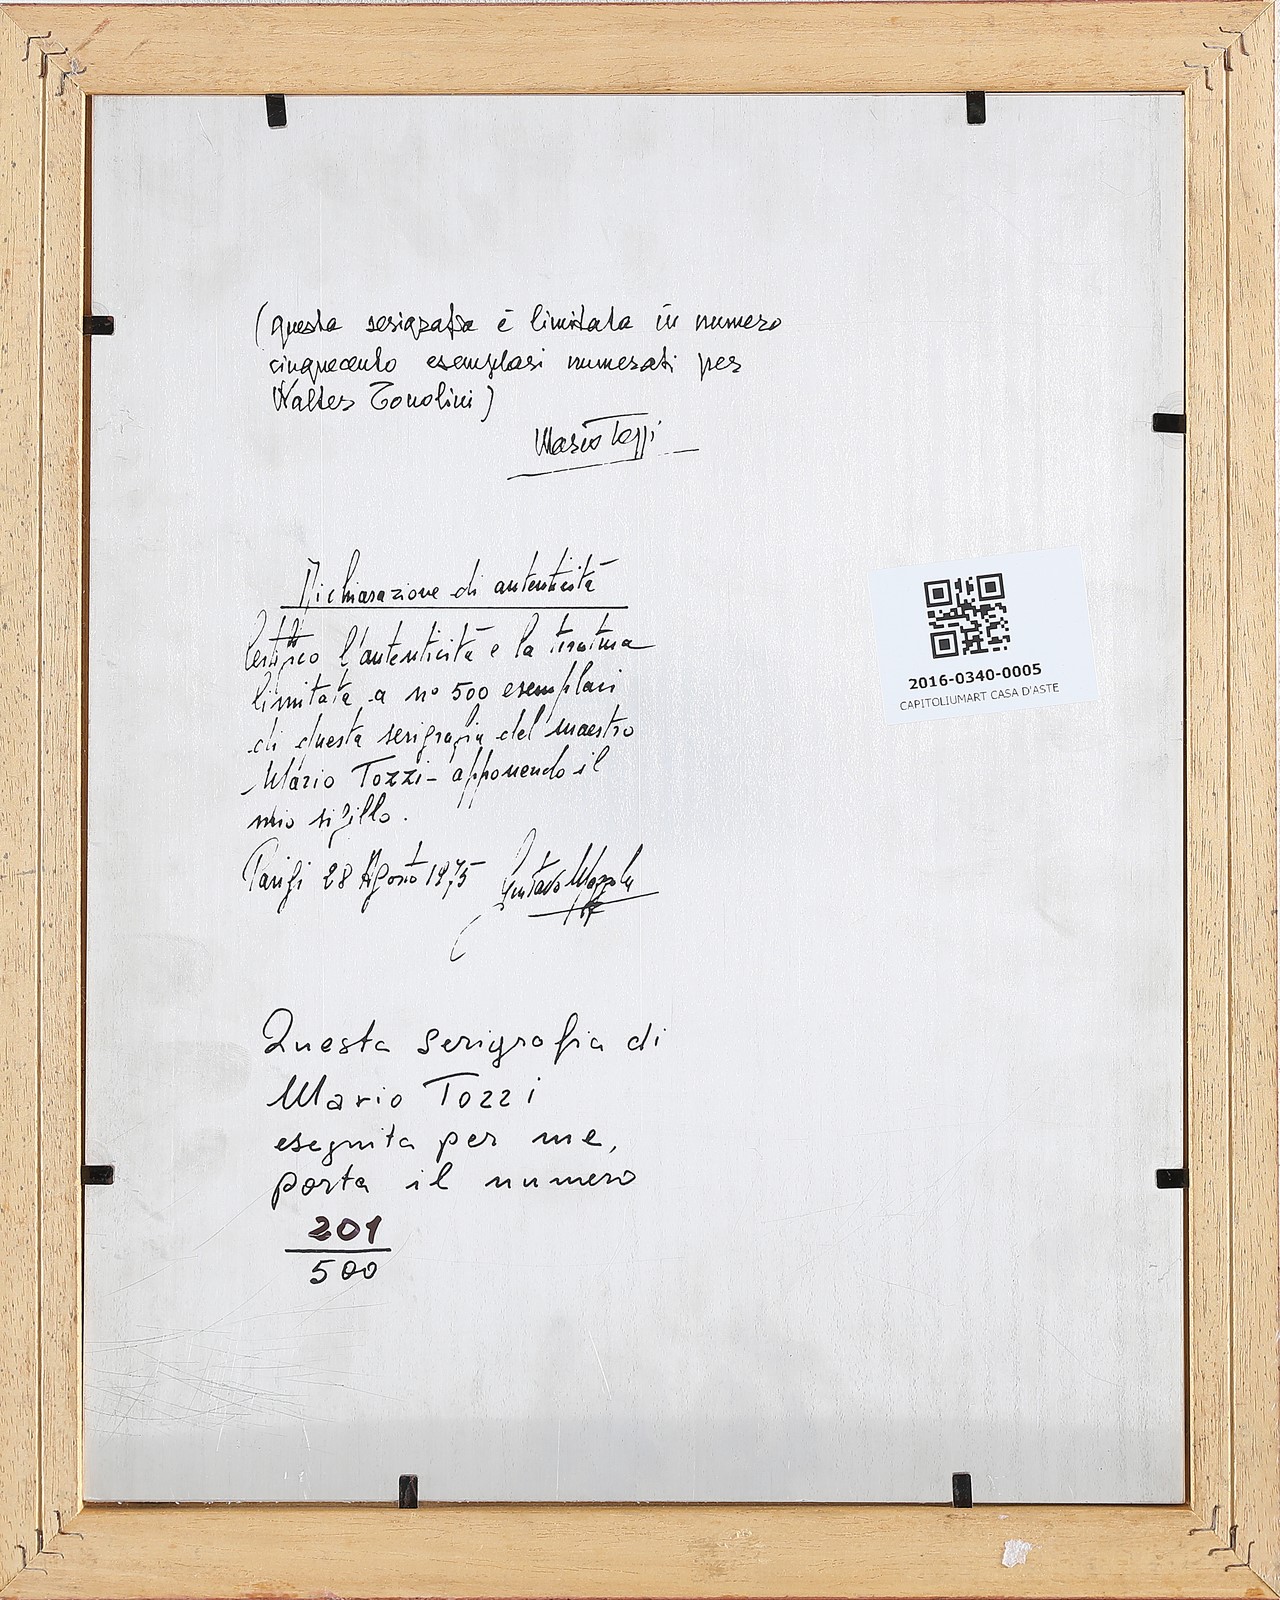 (questa serigrafia è limitata in numero
cinquecento esemplari numerati per
Walter Tonolini)
Mario Tozzi
Dichiarazione di autenticità
Certifico l'autenticità e la tiratura
limitata a n° 500 esemplari
di questa serigrafia del maestro
Mario Tozzi - apponendo il
mio sigillo.
Parigi 28 Agosto 1975
Questa serigrafia di
Mario Tozzi
eseguita per me,
porta il numero
201
500
2016-0340-0005
CAPITOLIUMART CASA D'ASTE